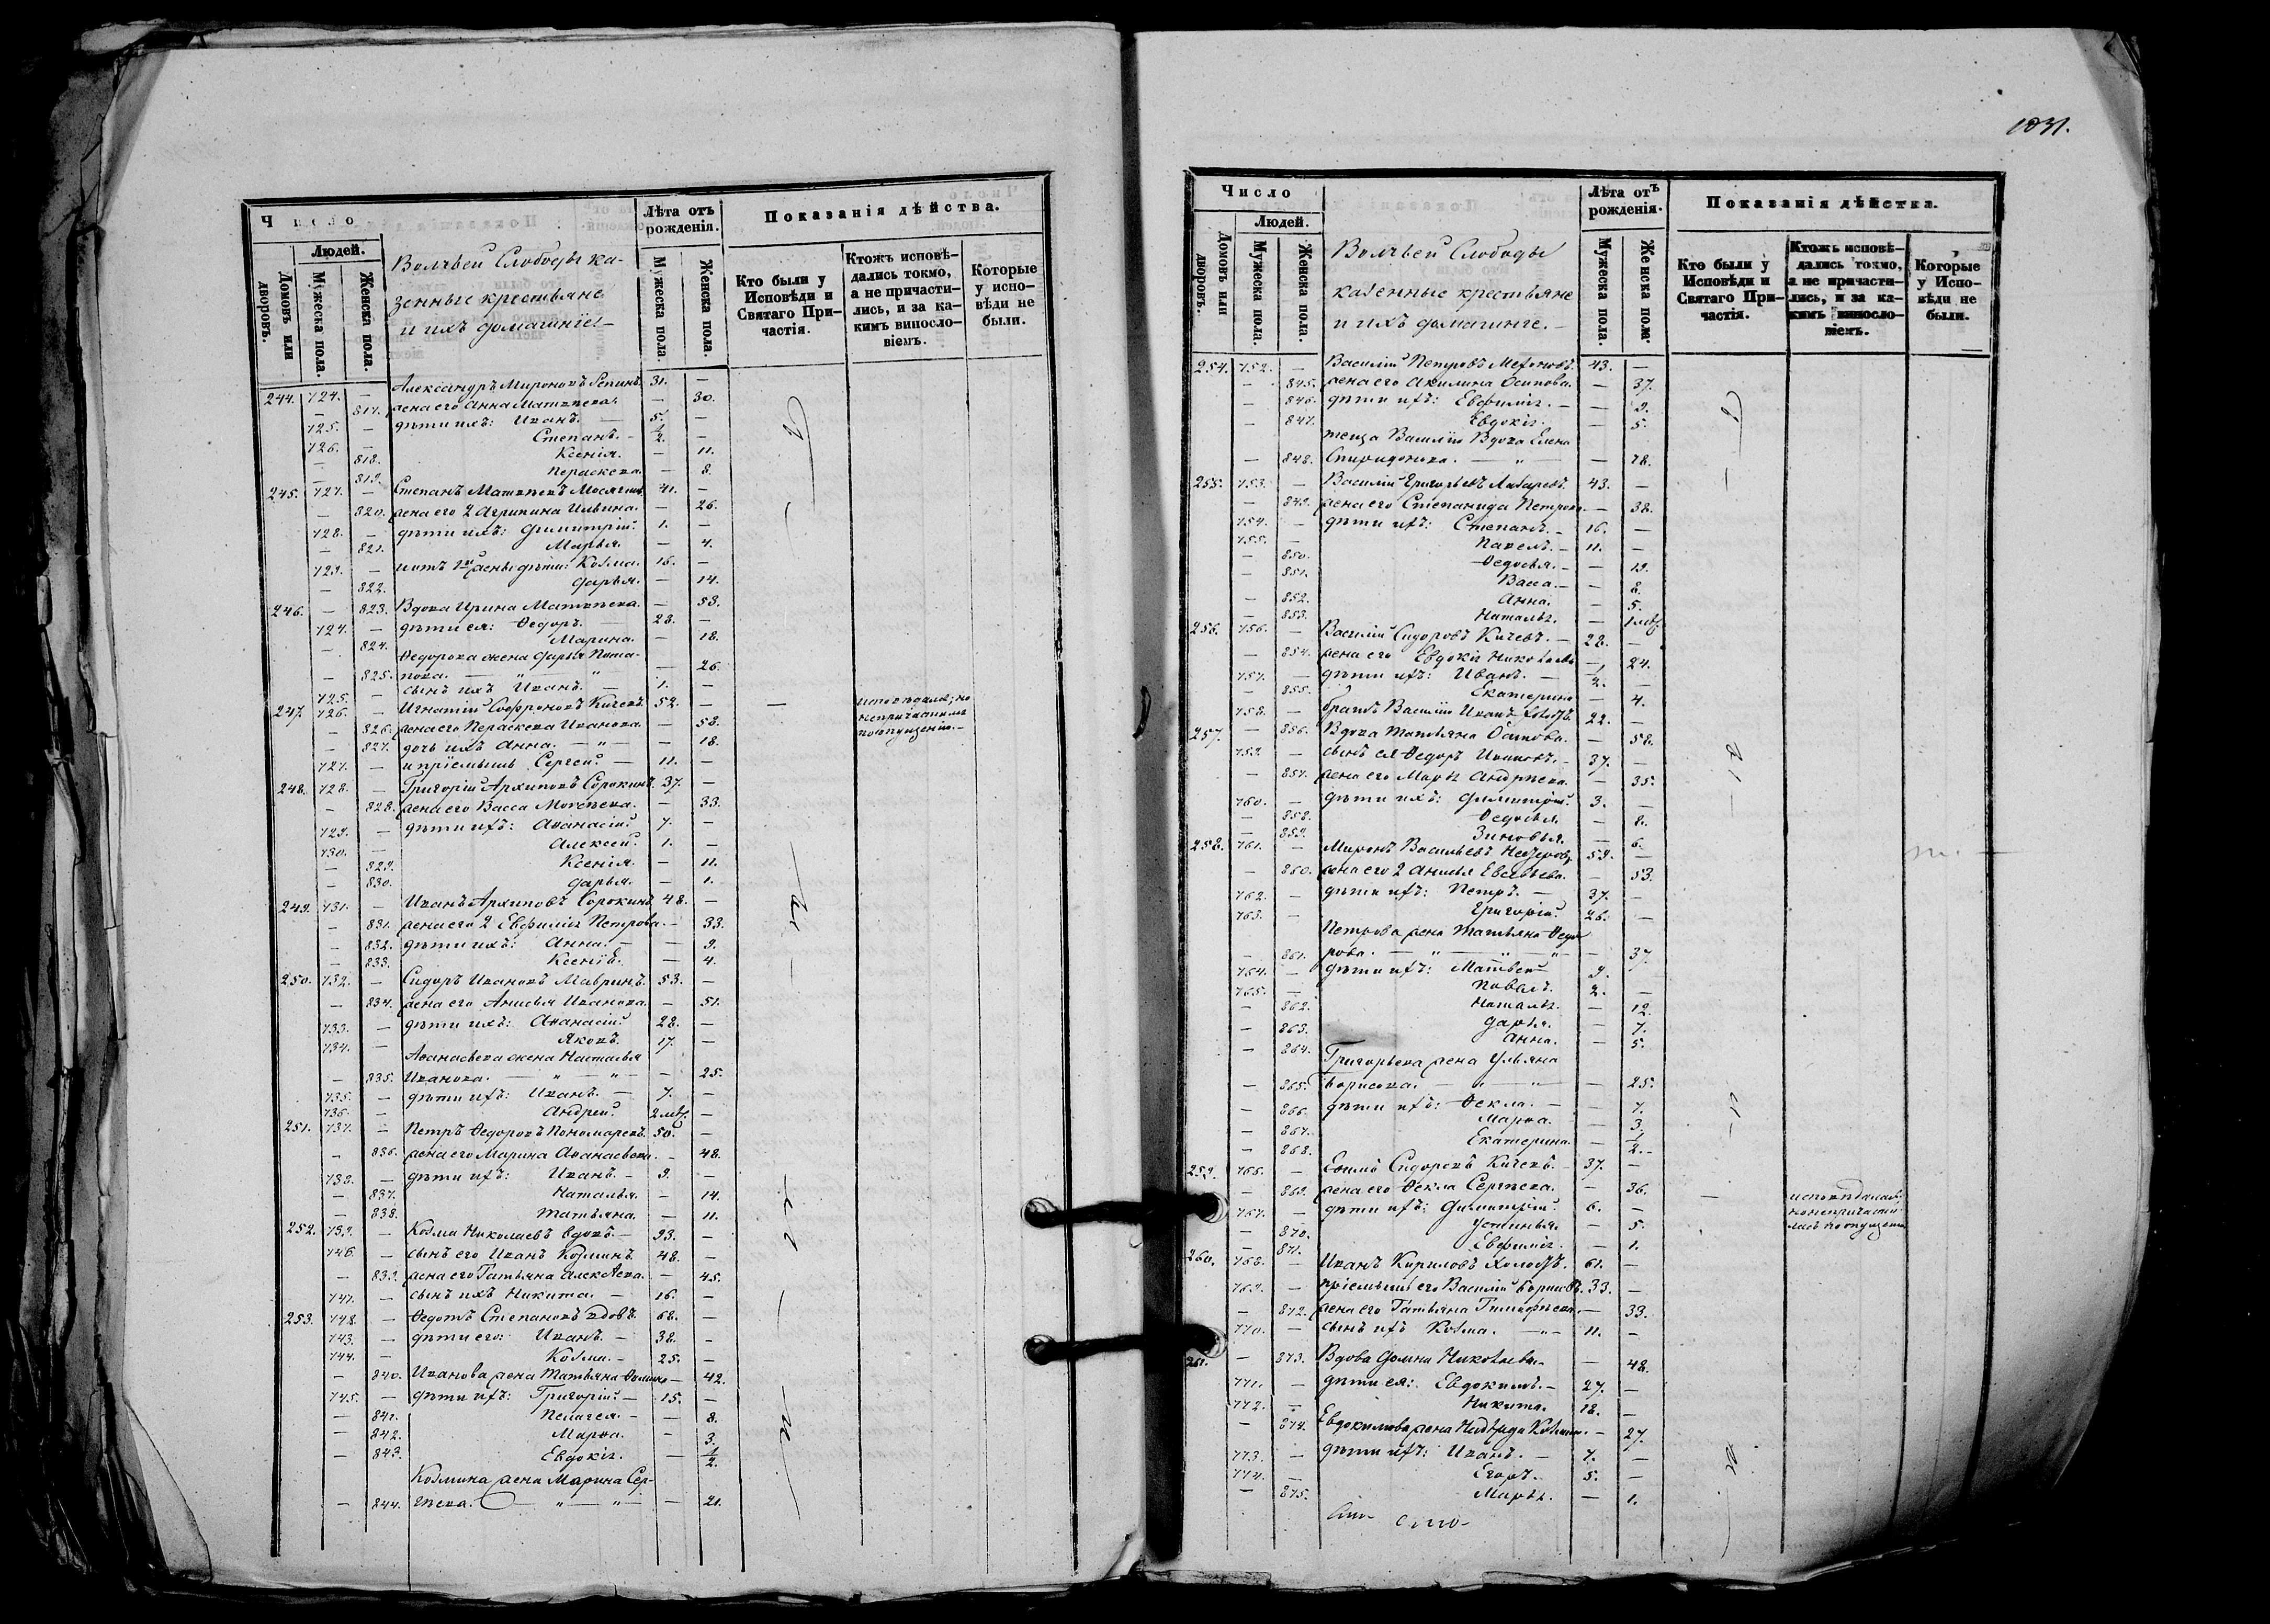 1031.
Число
Людей.
Домовъ или дворовъ.
Мужеска пола.
Женска пола.
Волчьей Слободы ка-
зенные крестьяне
и ихъ домашніе
Лѣта отъ рожденія.
Мужеска пола.
Женска пола.
Показанія дѣйства.
Кто были у Исповѣди и Святаго При-частія.
Ктожъ исповѣ-дались токмо, а не причасти-лись, и за ка-кимъ винословіемъ.
Которые у испо-вѣди не были.
244. 724. — Александръ Мироновъ Репинъ. 31. —
— 817. жена его Анна Матвѣева. — 30.
725. — дѣти ихъ: Иванъ. — 5. —
726. — Степанъ. — 1/2. —
— 818. Ксенія. — 11.
— 819. Параскева. — 8.
245. 727. — Степанъ Матвѣевъ 41. —
— 820. жена его 2 Агрипина Ильина. — 26.
728. — дѣти ихъ: Димитрій. 1. —
— 821. Марья. — 4.
729. — и отъ 1й жены дѣти: Козма. 16. —
— 822. Дарья. — 14.
246. — 823. Вдова Ирина Матвѣева. — 53.
724. — дѣти ея: Ѳедоръ. — 28. —
— 824. Марина. — 18.
Ѳедорова жена Дарья Пота-
— 825. пова. — „ — „ — 26.
725. — сынъ ихъ Иванъ. — 1. —
247. 726. — Игнатій Софроновъ Кичевъ. 52. —
— 826. жена его Параскева Иванова. — 58.
— 827. дочь ихъ Анна. — „ — — 18.
727. — и пріемышъ Сергей. — 11. —
248. 728. — Григорій Архиповъ Сорокинъ. 37. —
— 828. жена его Васса Моисеева. — 33.
729. — дѣти ихъ: Аѳанасій. 7. —
730. — Алексей. 1. —
— 829. Ксенія. — 11.
— 830. Дарья. — 1.
249. 731. — Иванъ Архиповъ Сорокинъ. 48. —
— 831. жена его 2 Евфимія Петрова. — 33.
— 832. дѣти ихъ: Анна. — — 9.
— 833. Ксенія. — 4.
250. 732. — Сидоръ Ивановъ Мавринъ. 53. —
— 834. жена его Анисья Иванова. — 51.
733. — дѣти ихъ: Аѳанасій. 28. —
734. — Яковъ. 17. —
Аѳанасьева жена Наталья
— 835. Иванова. — „ — „ — — 25.
735. — дѣти ихъ: Иванъ. — 7. —
736. — Андрей. 2 мѣс. —
251. 737. — Петръ Ѳедоровъ Пономаревъ. 50. —
— 836. жена его Марина Аѳанасьева. — 48.
738. — дѣти ихъ: Иванъ. — 9. —
— 837. Наталья. — 14.
— 838. Татьяна. — 11.
252. 739. — Козма Николаевъ вдовъ. — 93. —
740. — сынъ его Иванъ Козминъ. 48. —
— 839. жена его Татьяна Алексѣева. — 45.
741. — сынъ ихъ Никита. — 16. —
253. 742. — Ѳедотъ Степановъ вдовъ. 68. —
743. — дѣти его: Иванъ. — 38. —
744. — Козма. — 25. —
— 840. Иванова жена Татьяна — 42.
745. — дѣти ихъ: Григорій — 15. —
— 841. Пелагея. — — 8.
— 842. Марѳа. — 3.
— 843. Евдокія. — 1/2.
Козмина жена Марина Сер-
— 844. гѣева. — „ — „ — — 21.
исповѣдался, но
непричастился
по опущенію. —
Число
Людей.
Домовъ или дворовъ.
Мужеска пола.
Женска пола.
Волчьей Слободы
казенные крестьяне
и ихъ домашніе. —
Лѣта отъ рожденія.
Мужеска пола.
Женска пола.
Показанія дѣйства.
Кто были у Исповѣди и Святаго При-частія.
Ктожъ исповѣ-дались токмо, а не причасти-лись, и за ка-кимъ винословіемъ.
Которые у Испо-вѣди не были.
254. 752. — Василій Петровъ 43. —
— 845. жена его Акилина Осипова. — 37.
— 846. дѣти ихъ: Евфимія. — — 9.
— 847. Евдокія. — 5.
теща Василію Вдова Елена
— 848. Спиридонова. — „ — — 78.
255. 753. — Василій Григорьевъ Лазаревъ. 43. —
— 849. жена его Степанида Петрова. — 38.
754. — дѣти ихъ: Степанъ. — 16. —
755. — Павелъ. — 11. —
— 850. Ѳедосья. — — 19.
— 851. Васса. — — 8.
— 852. Анна. — 5.
— 853. Наталья. — 1 мѣс.
256. 756. — Василій Сидоровъ Кичевъ. — 28. —
— 854. жена его Евдокія Николаева — 24.
757. — дѣти ихъ: Иванъ. — 2. —
— 855. Екатерина — 4.
758. — братъ Василію Иванъ холостъ. 22. —
257. — 856. Вдова Татьяна Осипова. — 58.
759. — сынъ ея Ѳедоръ Ивановъ. — 37. —
— 857. жена его Марья Андреева. — 35.
760. — дѣти ихъ: Димитрій. 3. —
— 858. Ѳедосья. — 8.
— 859. Зиновья. — 6.
258. 761. — Миронъ Васильевъ 59. —
— 860. жена его 2 Анисья Евсевьева. — 53.
762. — дѣти ихъ: Петръ. — 37. —
763. — Григорій. 26. —
Петрова жена Татьяна Ѳедо
— 861. рова. — „ — „ — „ — 37.
764. — дѣти ихъ: Матвей 9. —
765. — Павелъ. 2. —
— 862. Наталья. — 12.
— 863. Дарья. — 7.
— 864. Анна. — 5.
Григорьева жена Ульяна
— 865. Борисова. — „ — „ — — 25.
— 866. дѣти ихъ: Ѳекла. — — 7.
— 867. Марѳа. — 3.
— 868. Екатерина. — 1/2. —
259. 766. — Ефимъ Сидоровъ Кичевъ. — 37. —
— 869. жена его Ѳекла Сергѣева. — 36.
767. — дѣти ихъ: Димитрій. 6. —
— 870. Устинья. — 5.
— 871. Евфимія. — 1.
260. 768. — Иванъ Кириловъ холостъ. 61. —
769. — пріемышъ его Василій Борисовъ. 33. —
— 872. жена его Татьяна Тимофѣева. — 33.
770. — сынъ ихъ Козма. — „ — 11. —
261. — 873. Вдова Домна Николаева. — 48.
771. — дѣти ея: Евдокимъ. — 27. —
772. — Никита. 18. —
— 874. Евдокимова жена Козмина. — 27.
773. — дѣти ихъ: Иванъ. — 7. —
774. — Егоръ. 5. —
— 875. Марья. — 1.
исповѣдалась,
но непричасти-
лась по опущенію